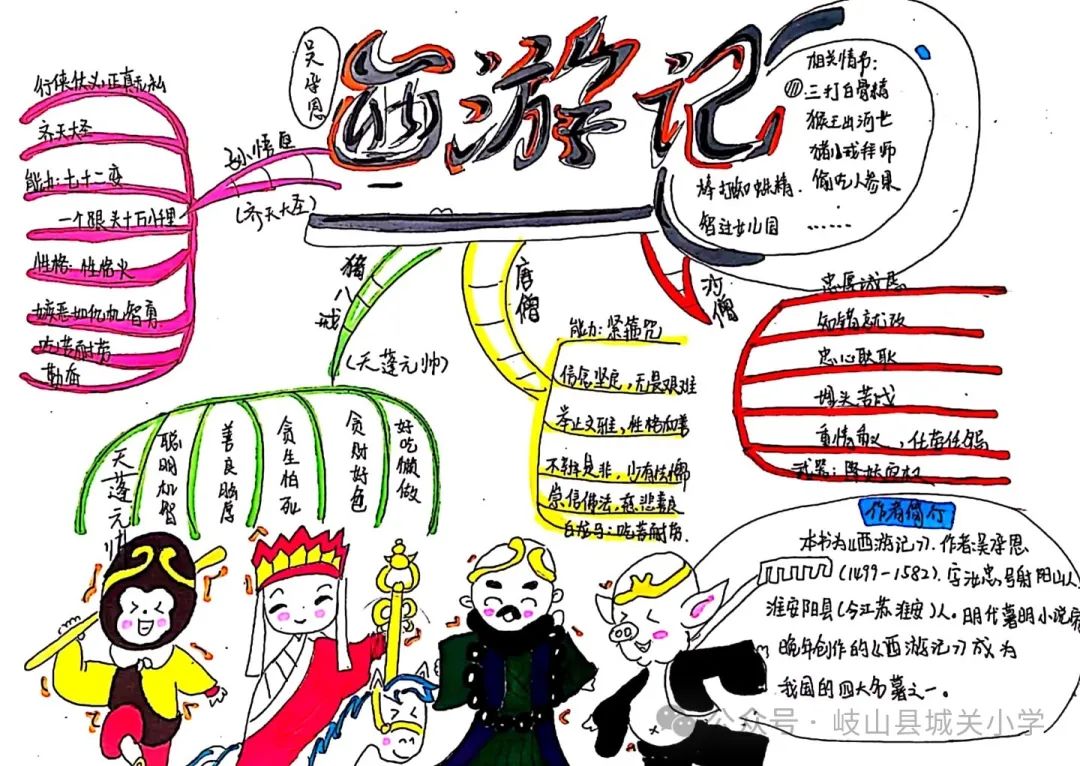 西游记
吴承恩
相关情节:
三打白骨精
猴王出问世
猪八戒拜师
偷吃人参果
棒打蜘蛛精
智过女儿国
……
孙悟空
(齐天大圣)
行侠仗义,正直无私
齐天大圣
能力:七十二变
一个跟头十万八千里
性格:性格火
嫉恶如仇,机智勇
吃苦耐劳
勤奋
猪八戒
(天蓬元帅)
天蓬元帅
聪明机智
善良憨厚
贪生怕死
贪财好色
好吃懒做
唐僧
能力:紧箍咒
信念坚定,无畏艰难
举止文雅,性格和善
不辨是非,
崇信佛法,慈悲
白龙马:吃苦耐劳.
沙僧
忠厚
知错就改
忠心耿耿
埋头苦
重情重义,任劳任怨
武器:降妖
作者简介
本书为《西游记》.作者吴承恩
(1499-1582).字汝忠.号射阳山人
淮安阳县(今江苏淮安)人.明代著明小说家
晚年创作的《西游记》成为
我国的四大名著之一。
公众号·岐山县城关小学